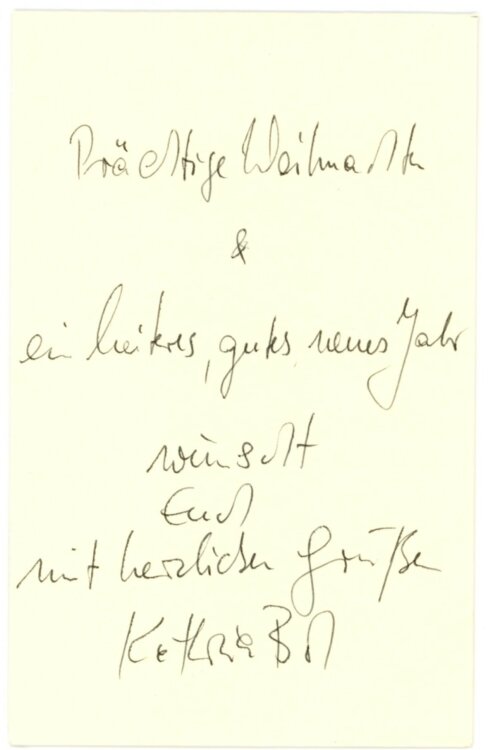 Prächtige Weihnachten
&
ein heiteres, gutes neues Jahr
wünscht
Euch
mit herzlichen Grüßen